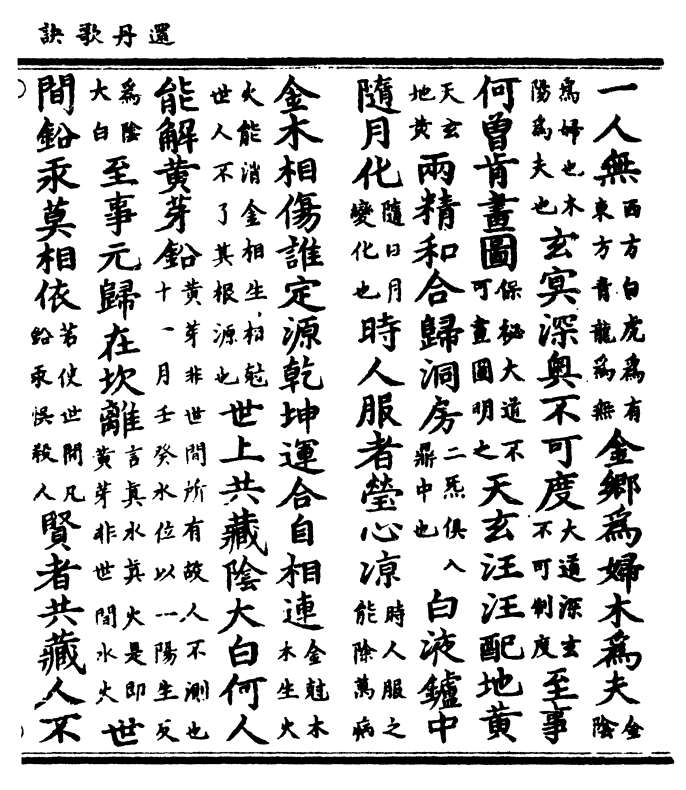 還丹歌訣
一人無西方白虎爲有東方青龍爲無金鄉爲婦木爲夫金陰
爲婦也木陽爲夫也玄冥深奧不可度大道深玄不可制度至事
何曾肯畫圖保秘大道不可畫圖明之天玄汪汪配地黃
天玄地黃兩精和合歸洞房二炁俱入鼎中也白液鑪中
隨月化隨日月變化也時人服者瑩心凉時人服之能除萬病
金木相傷誰定源乾坤運合自相連金尅木木生火
火能消金相生相尅世人不了其根源也世上共藏陰大白何人
能解黃芽鉛黃芽非世間所有故人不測也十一月壬癸水位以一陽生反
爲陰大白至事元歸在坎離言眞水眞火是即黃芽非世間水火世
間鉛汞莫相依若使世間凡鉛汞悞殺人賢者共藏人不